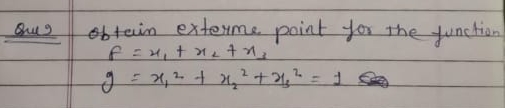 Que 9 obtain exterme point for the function
f = x₁ + x₂ + x₃
g = x₁² + x₂² + x₃² = 1